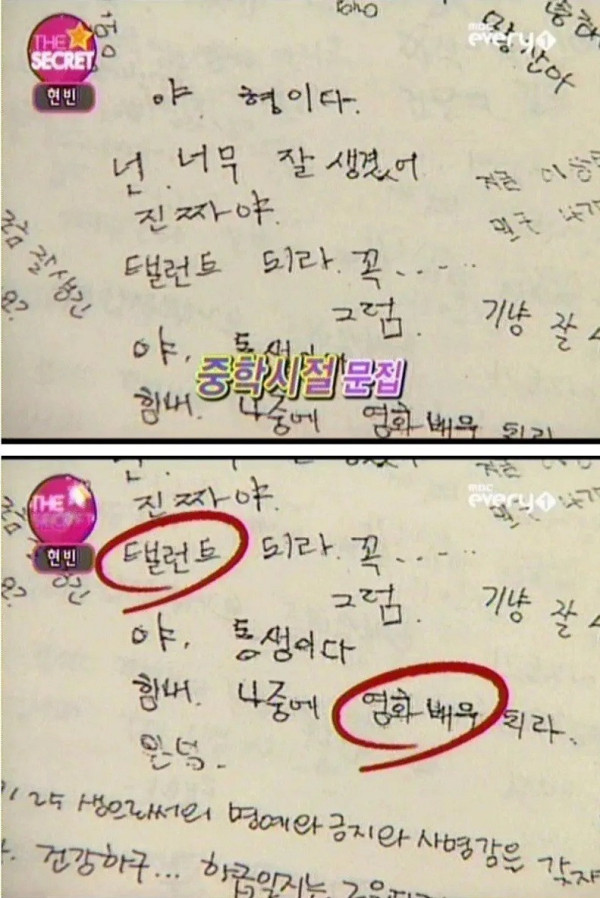 THE
SECRET
현빈
mbc
every1
야. 형이다.
넌 너무 잘 생겼어
진짜야.
탤런트 되라. 꼭.....
그럼.
기냥 잘
잘 생긴
야.
중학시절 문집
힘내. 나중에 영화배우 되라
THE
SECRET
현빈
mbc
every1
진짜야.
탤런트 되라. 꼭.....
그럼.
기냥 잘
야. 동생이다
힘내. 나중에 영화배우 되라.
25 생으로써의 명예와 긍지와 사명감을 갖자
건강하구...